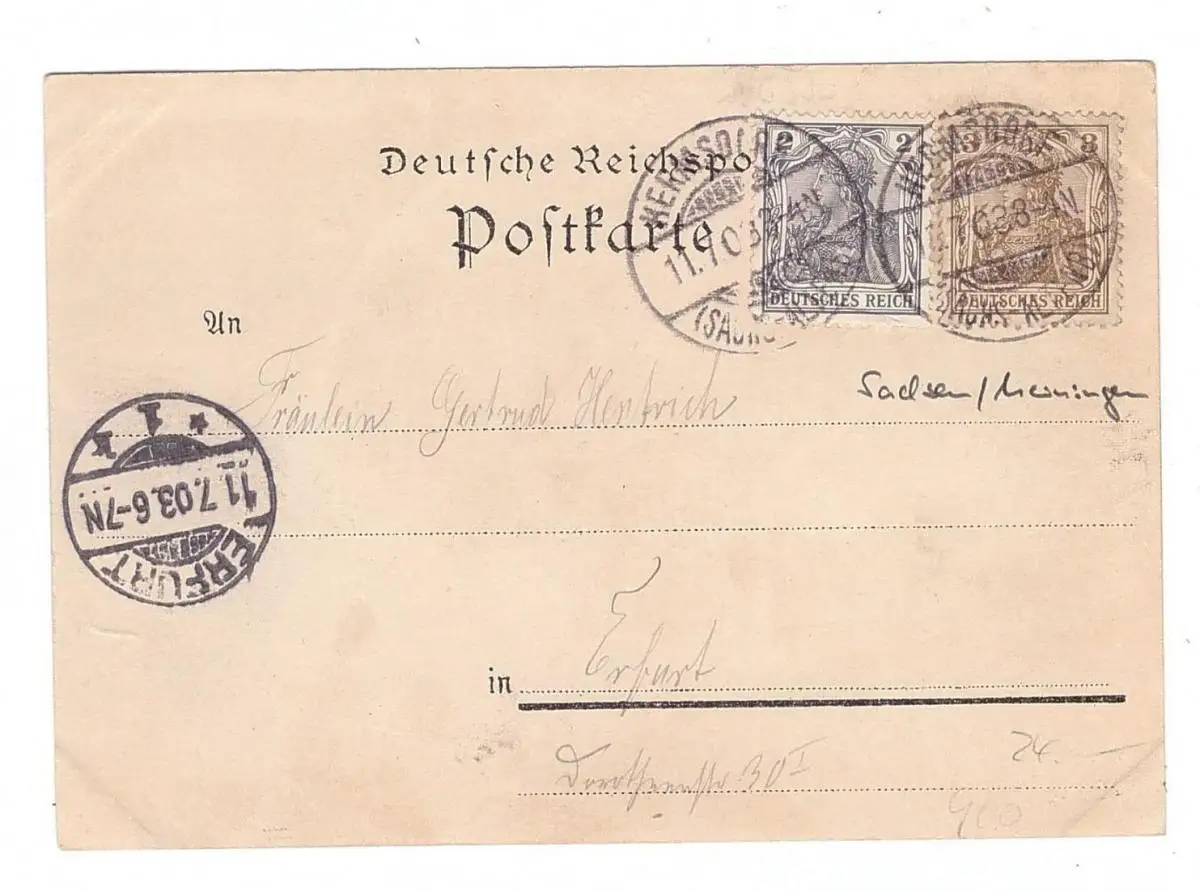 Deutsche Reichspo
Postkarte
2 2
DEUTSCHES REICH
3 3
DEUTSCHES REICH
HERMSDORF
11.7.03.8-
(SACHS.-
HERMSDORF
7.03.8-
An
Fräulein Gertrud Hentrich
Sachsen/Meiningen
* 1 k
11.7.03.6-7N
ERFURT
in Erfurt
Dorotheenstr 30 I
24.—